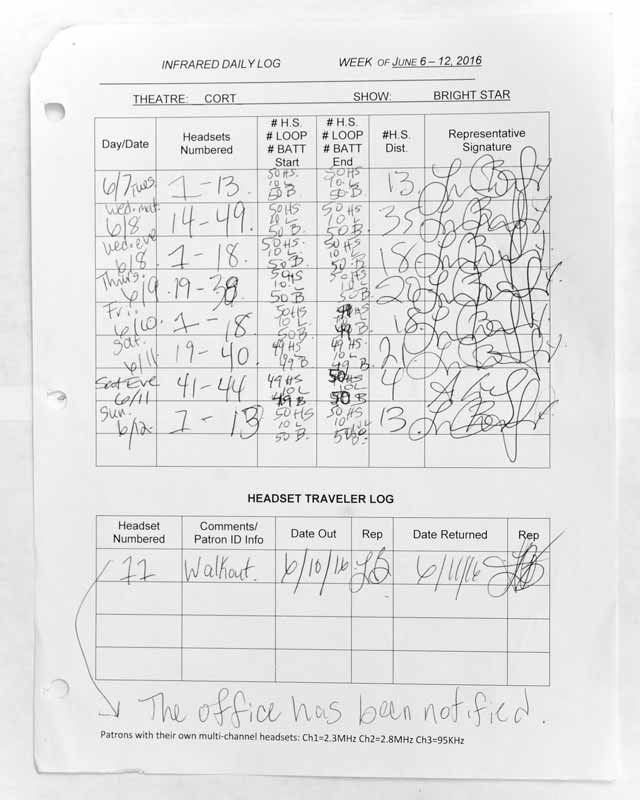 INFRARED DAILY LOG WEEK OF JUNE 6 – 12, 2016
THEATRE: CORT SHOW: BRIGHT STAR
Day/Date Headsets Numbered # H.S. # LOOP # BATT Start # H.S. # LOOP # BATT End #H.S. Dist. Representative Signature
6/7 Tues 1 - 13. 50 HS. 10 L. 50 B. 50 HS. 10 L. 50 B. 13
Wed. mat. 6/8 14 - 49. 50 HS 10 L 50 B. 50 HS 10 L 50 B. 35
Wed. eve 6/8. 1 - 18. 50 HS. 10 L. 50 B. 50 HS. 10 L. 50 B. 18
Thurs. 6/9 19 - 38. 50 HS 10 L 50 B 50 HS. 10 L 50 B. 20
Fri. 6/10. 1 - 18. 50 HS 10 L 50 B. 49 HS. 10 L 49 B. 18
Sat. 6/11 19 - 40. 49 HS 10 L 49 B 49 HS. 10 L 49 B. 21
Sat Eve 6/11 41 - 44 49 HS 10 L 49 B 50 HS 10 L 50 B 4
Sun. 6/12. 1 - 13 50 HS 10 L 50 B. 50 HS 10 L 50 B. 13
HEADSET TRAVELER LOG
Headset Numbered Comments/ Patron ID Info Date Out Rep Date Returned Rep
11 Walkout. 6/10/16 LB 6/11/16 LB
The office has been notified.
Patrons with their own multi-channel headsets: Ch1=2.3MHz Ch2=2.8MHz Ch3=95KHz